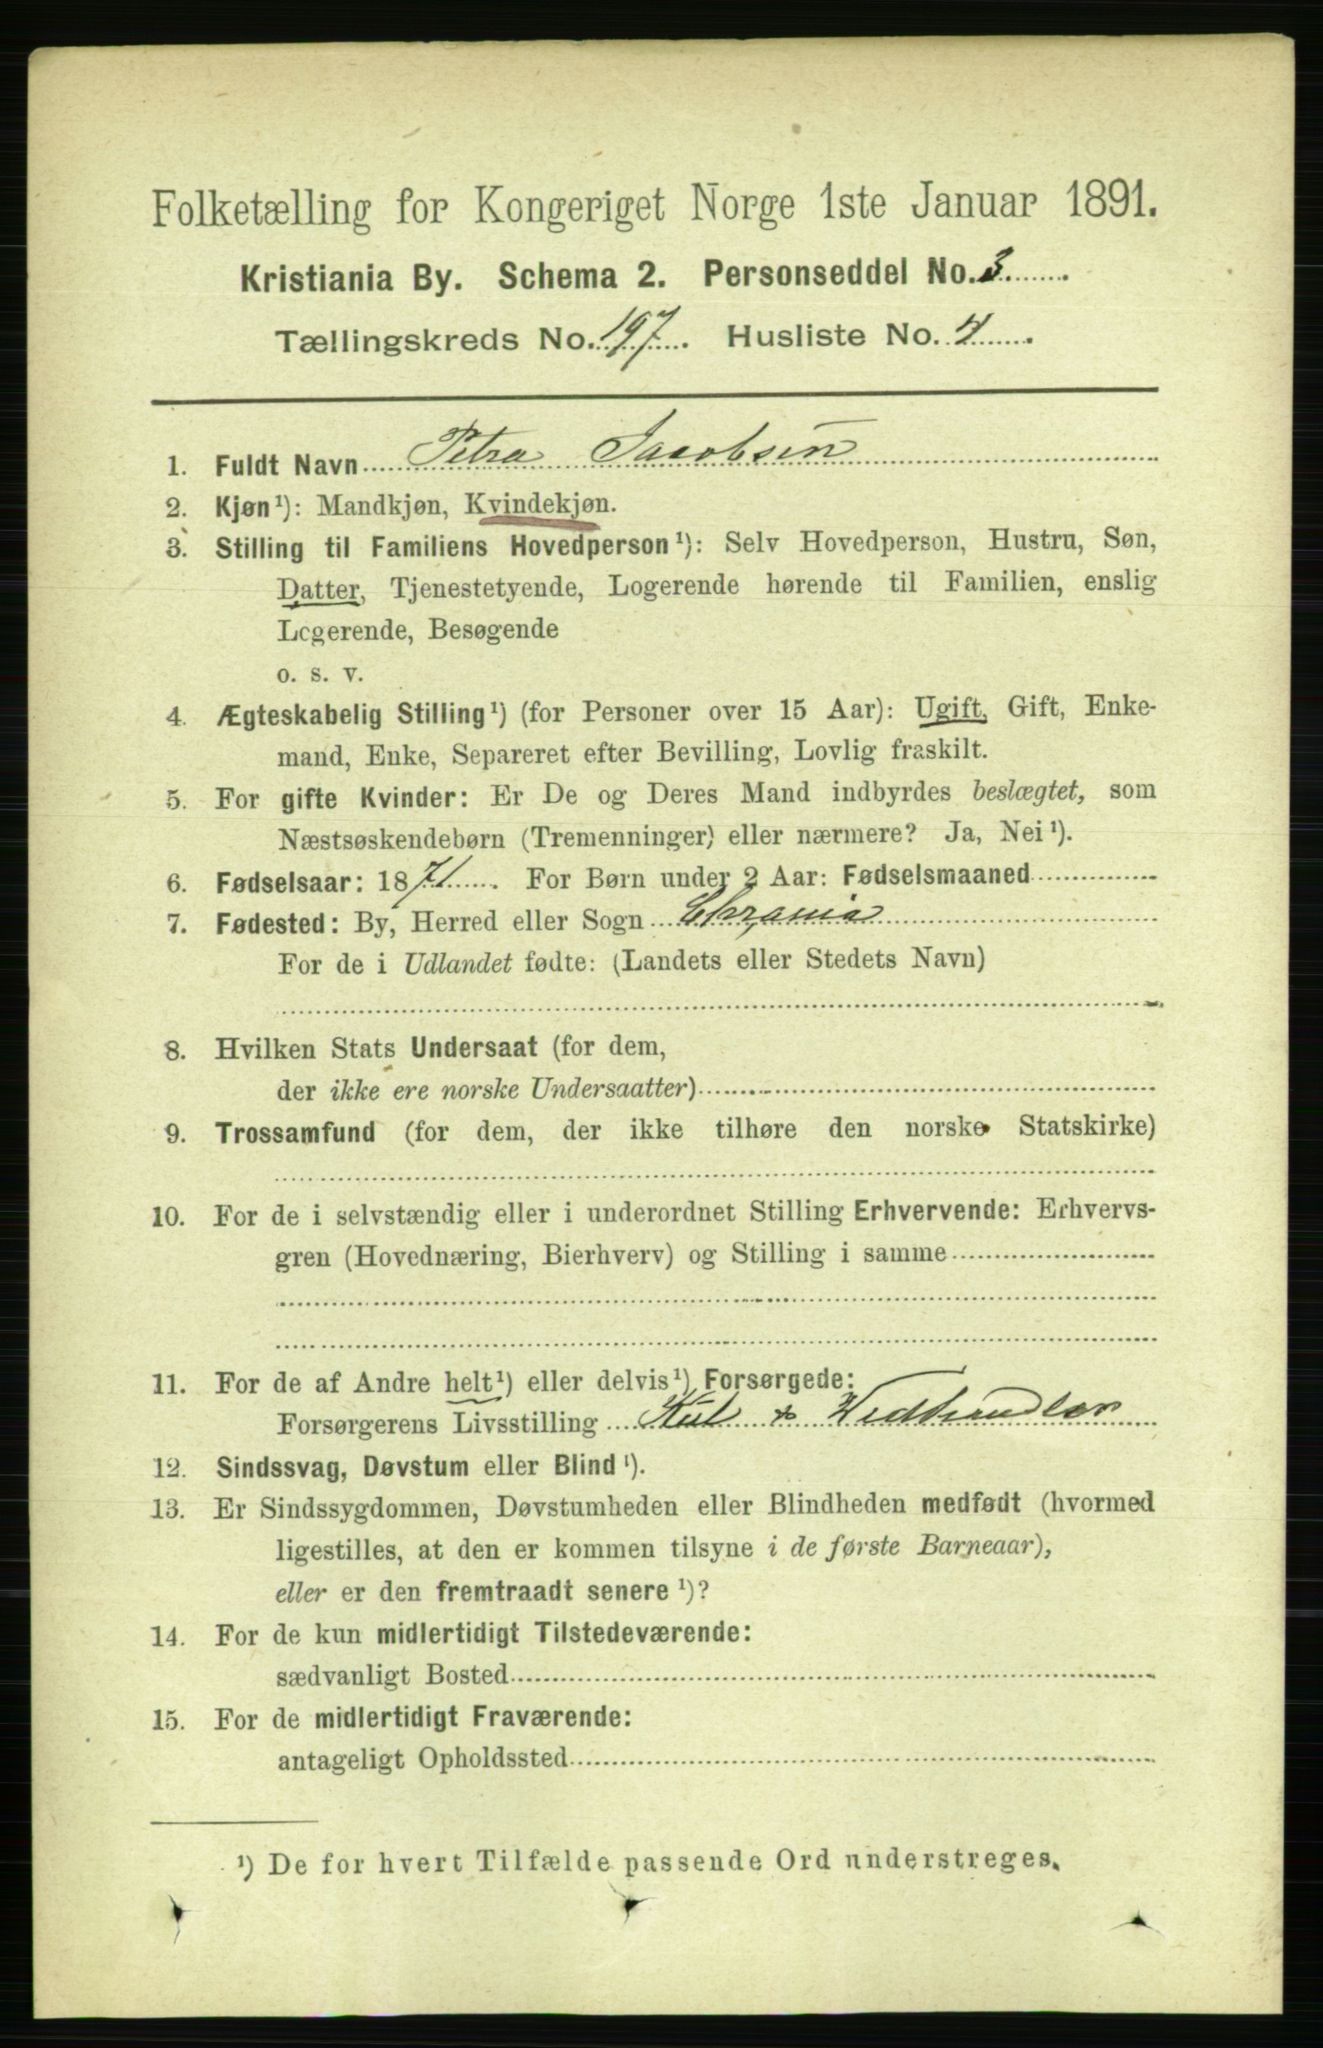 Folketælling for Kongeriget Norge 1ste Januar 1891.
Kristiania By. Schema 2. Personseddel No. 3
Tællingskreds No. 197. Husliste No. 4.
1. Fuldt Navn Petra Jacobsen
2. Kjøn¹): Mandkjøn, Kvindekjøn.
3. Stilling til Familiens Hovedperson¹): Selv Hovedperson, Hustru, Søn,
Datter, Tjenestetyende, Logerende hørende til Familien, enslig
Logerende, Besøgende
o. s. v.
4. Ægteskabelig Stilling¹) (for Personer over 15 Aar): Ugift, Gift, Enke-
mand, Enke, Separeret efter Bevilling, Lovlig fraskilt.
5. For gifte Kvinder: Er De og Deres Mand indbyrdes beslægtet, som
Næstsøskendebørn (Tremenninger) eller nærmere? Ja, Nei¹).
6. Fødselsaar: 1871. For Børn under 2 Aar: Fødselsmaaned
7. Fødested: By, Herred eller Sogn Chrania
For de i Udlandet fødte: (Landets eller Stedets Navn)
8. Hvilken Stats Undersaat (for dem,
der ikke ere norske Undersaatter)
9. Trossamfund (for dem, der ikke tilhøre den norske Statskirke)
10. For de i selvstændig eller i underordnet Stilling Erhvervende: Erhvervs-
gren (Hovednæring, Bierhverv) og Stilling i samme
11. For de af Andre helt¹) eller delvis¹) Forsørgede:
Forsørgerens Livsstilling Kul & Vedhandler
12. Sindssvag, Døvstum eller Blind¹).
13. Er Sindssygdommen, Døvstumheden eller Blindheden medfødt (hvormed
ligestilles, at den er kommen tilsyne i de første Barneaar),
eller er den fremtraadt senere¹)?
14. For de kun midlertidigt Tilstedeværende:
sædvanligt Bosted
15. For de midlertidigt Fraværende:
antageligt Opholdssted
¹) De for hvert Tilfælde passende Ord understreges.